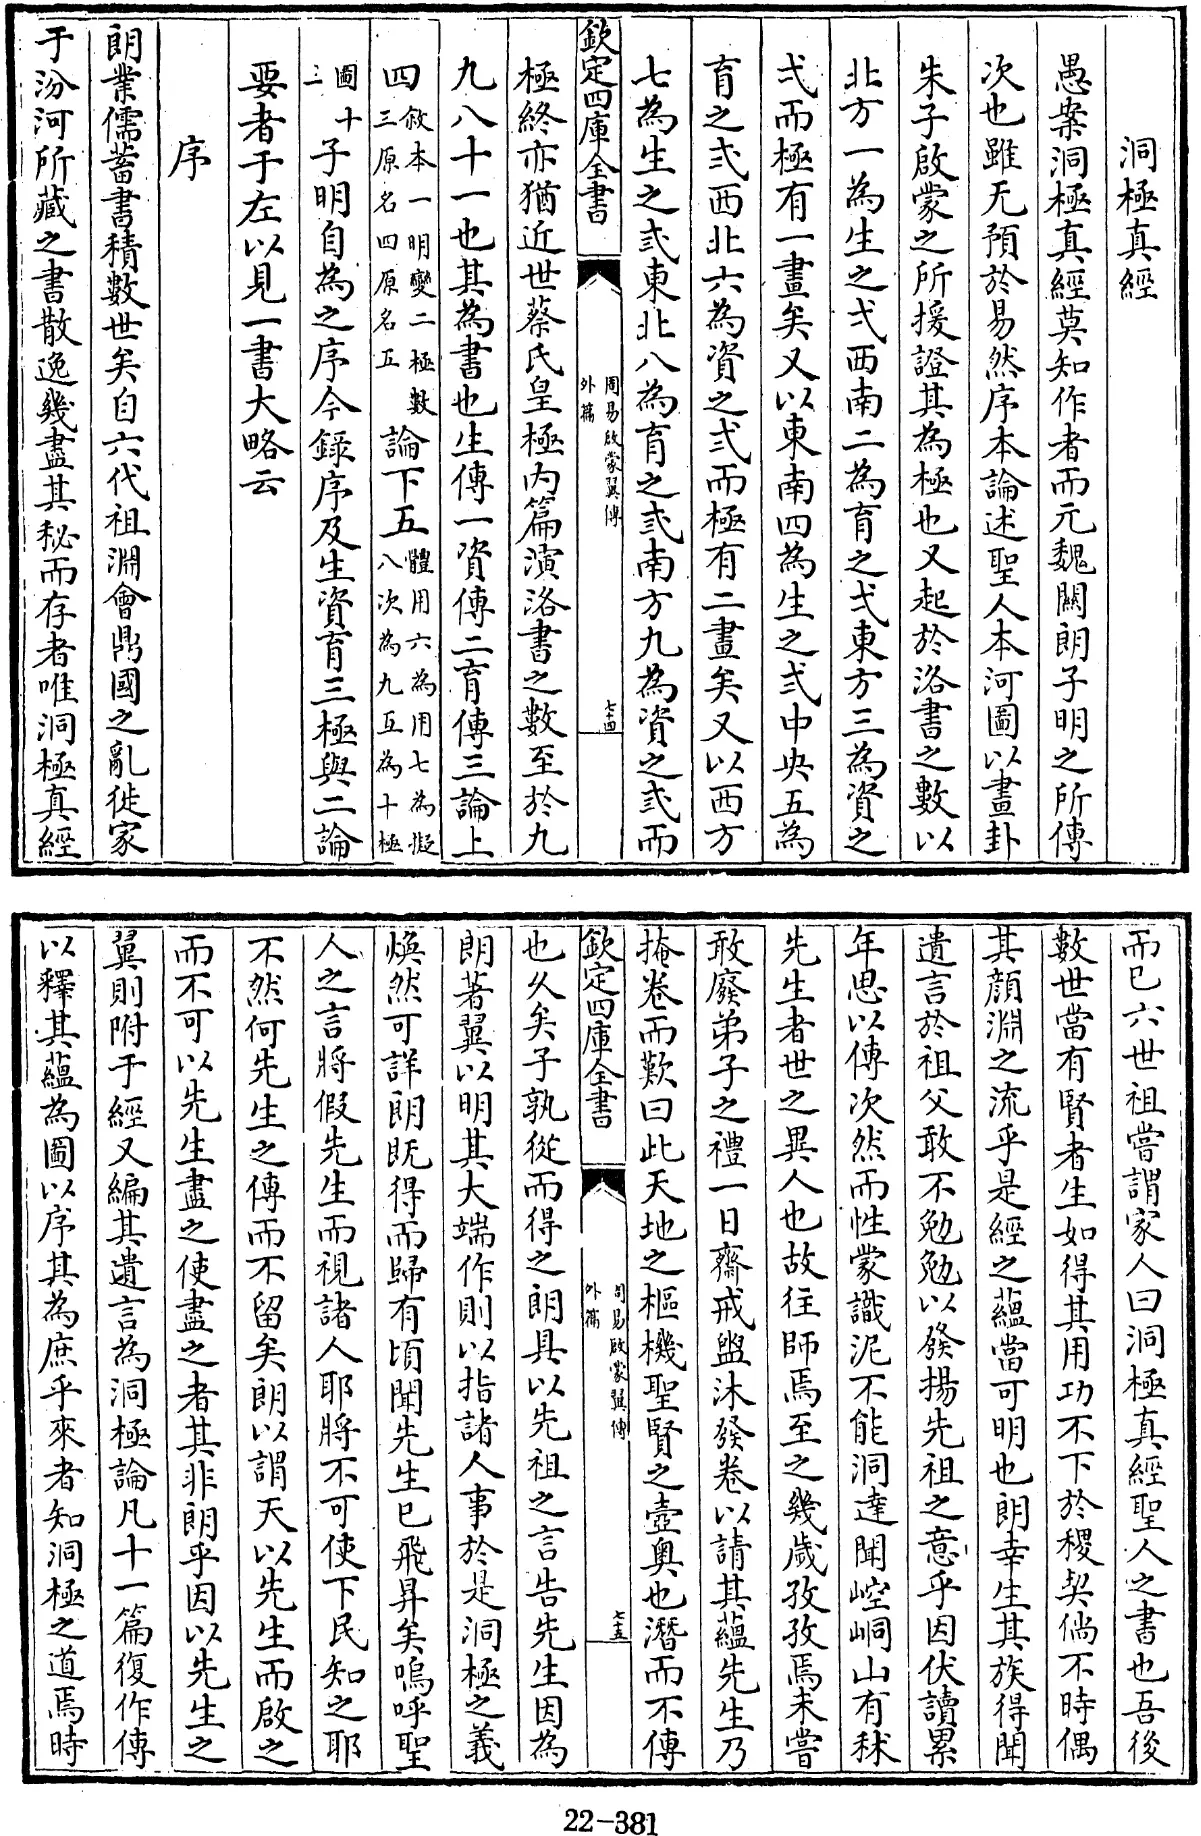 洞極真經
愚案洞極真經莫知作者而元魏關朗子明之所傳
次也雖无預於易然序本論述聖人本河圖以畫卦
朱子啟蒙之所援證其為極也又起於洛書之數以
北方一為生之弍西南二為育之弍東方三為資之
弍而極有一畫矣又以東南四為生之弍中央五為
育之弍西北六為資之弍而極有二畫矣又以西方
七為生之弎東北八為育之弎南方九為資之弎而
欽定四庫全書
周易啟蒙翼傳
外篇
七十四
極終亦猶近世蔡氏皇極内篇演洛書之數至於九
九八十一也其為書也生傳一資傳二育傳三論上
四敘本一明變二極數三原名四原名五論下五體用六為用七為擬八次為九互為十極
圖十二子明自為之序今録序及生資育三極與二論
要者于左以見一書大略云
序
朗業儒蓄書積數世矣自六代祖淵會鼎國之亂徙家
于汾河所藏之書散逸幾盡其秘而存者唯洞極真經
而已六世祖嘗謂家人曰洞極真經聖人之書也吾後
數世當有賢者生如得其用功不下於稷契倘不時偶
其顔淵之流乎是經之蘊當可明也朗幸生其族得聞
遺言於祖父敢不勉勉以發揚先祖之意乎因伏讀累
年思以傳次然而性蒙識泥不能洞達聞崆峒山有秫
先生者世之異人也故往師焉至之幾歲孜孜焉未嘗
敢廢弟子之禮一日齋戒盥沐發卷以請其蘊先生乃
掩卷而歎曰此天地之樞機聖賢之壼奥也潛而不傳
欽定四庫全書
周易啟蒙翼傳
外篇
七十五
也久矣子孰從而得之朗具以先祖之言告先生因為
朗著翼以明其大端作則以指諸人事於是洞極之義
煥然可詳朗既得而歸有頃聞先生已飛昇矣嗚呼聖
人之言將假先生而視諸人耶將不可使下民知之耶
不然何先生之傳而不留矣朗以謂天以先生而啟之
而不可以先生盡之使盡之者其非朗乎因以先生之
翼則附于經又編其遺言為洞極論凡十一篇復作傳
以釋其蘊為圖以序其為庶乎來者知洞極之道焉時
22-381